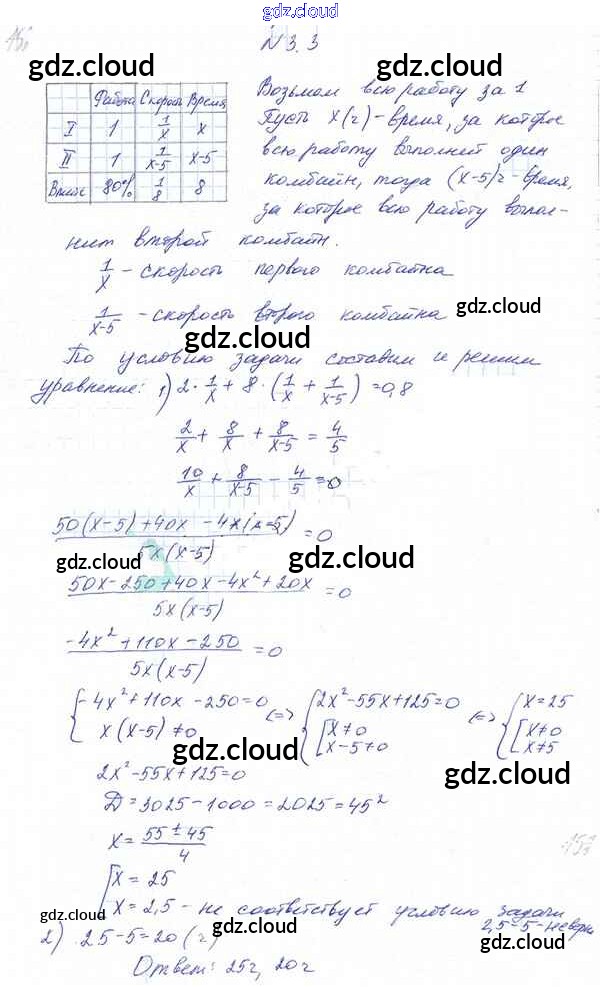 gdz.cloud
N 3.3
gdz.cloud gdz.cloud
Работа Скорость Время
I 1 1/x x
II 1 1/(x-5) x-5
Вместе 80% 1/8 8
Возьмем всю работу за 1
Пусть x(ч) - время, за которое
всю работу выполнит один
комбайн, тогда (x-5)ч - время,
за которое всю работу выпол-
нит второй комбайн.
1/x - скорость первого комбайна
1/(x-5) - скорость второго комбайна
gdz.cloud
gdz.cloud
По условию задачи составим и решим
уравнение: 1) 2 · 1/x + 8 · (1/x + 1/(x-5)) = 0,8
gdz.cloud
2/x + 8/x + 8/(x-5) = 4/5
10/x + 8/(x-5) - 4/5 = 0
(50(x-5) + 40x - 4x(x-5))/(5x(x-5)) = 0
gdz.cloud gdz.cloud
(50x - 250 + 40x - 4x² + 20x)/(5x(x-5)) = 0
gdz.cloud
(-4x² + 110x - 250)/(5x(x-5)) = 0
{-4x² + 110x - 250 = 0 <=> {2x² - 55x + 125 = 0 <=> {x = 25
x(x-5) ≠ 0 [x ≠ 0 [x ≠ 0
x - 5 ≠ 0 x ≠ 5
gdz.cloud gdz.cloud
2x² - 55x + 125 = 0
Д = 3025 - 1000 = 2025 = 45²
x = (55 ± 45)/4
[x = 25
x = 2,5 - не соответствует условию задачи
2,5-5-неверно
gdz.cloud gdz.cloud gdz.cloud
2) 25 - 5 = 20 (ч)
Ответ: 25ч, 20ч
gdz.cloud